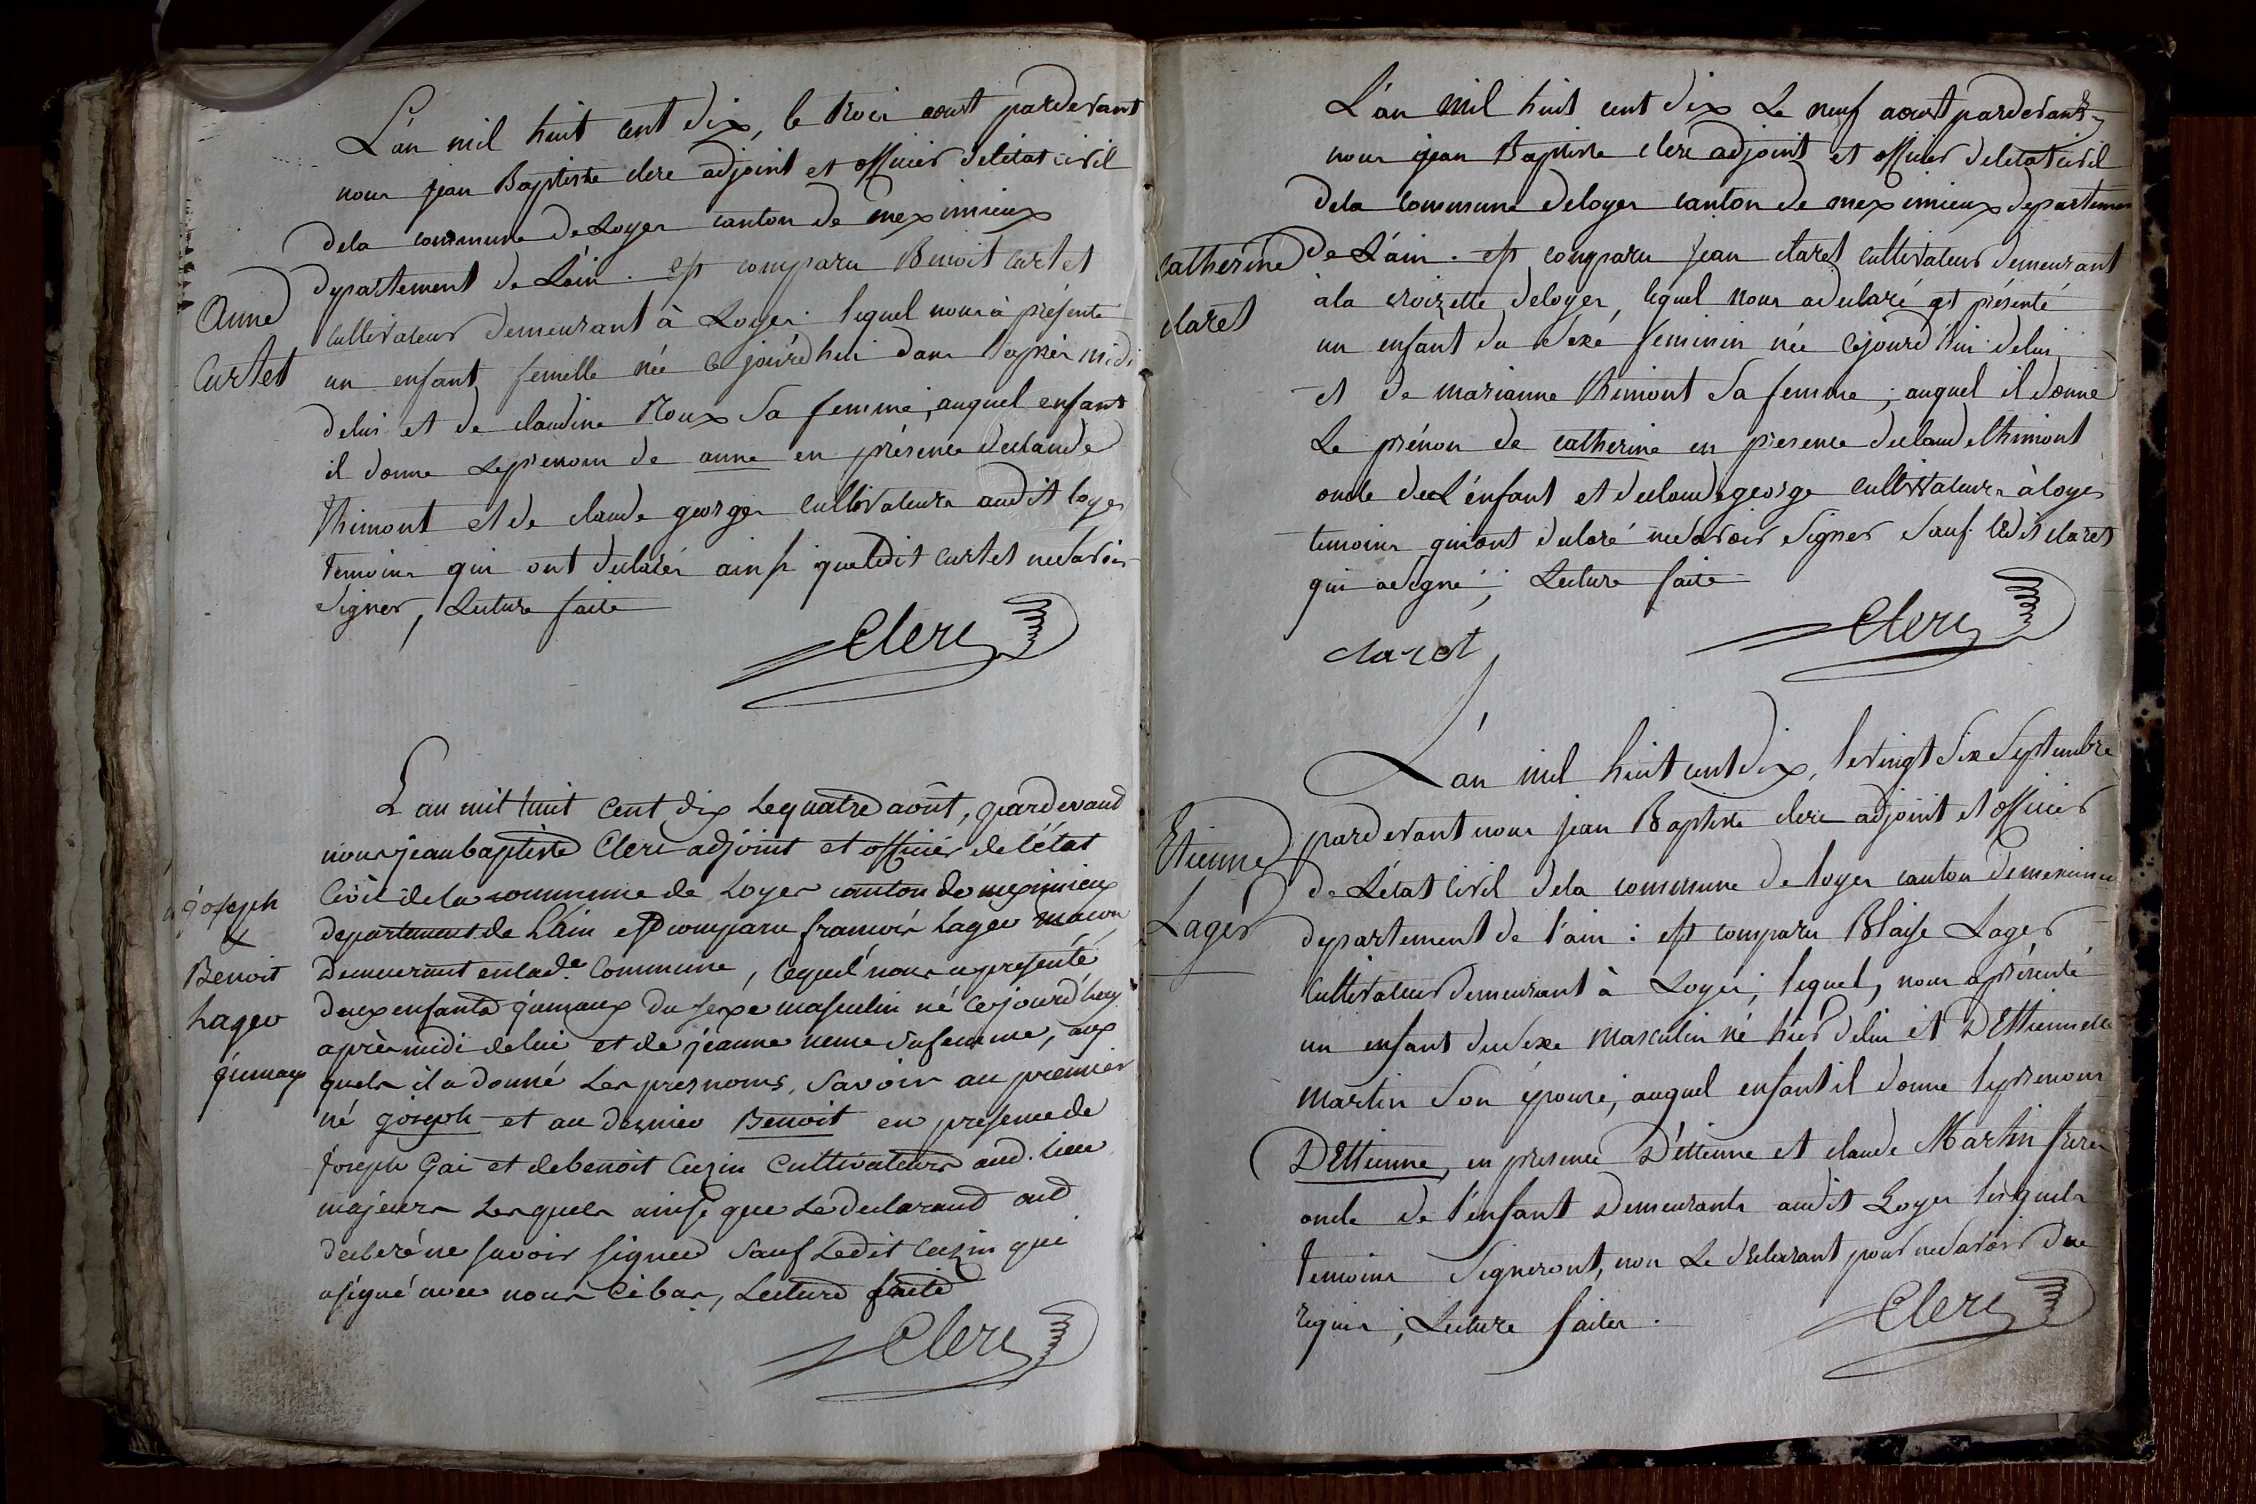 L'án mil huit cent dix, le trois aoust pardevant
nous jean Baptiste clerc adjoint et officier deletat civil
dela commune de Loyes canton de meximieux
departement de L'áin. est comparu Benoit Curtet
Anne
Curtet
cultivateur demeurant à Loyes. lequel nous à présenté
un enfant femelle née ce jourd'hui dans l'aprés midi
delui et de claudine Roux Sa femme, auquel enfant
il donne le prenom de anne en présence declaude
thimont et de claude george cultivateurs audit loyes
temoins qui ont declarés ainsi queledit curtet nesavoir
Signer, Lecture faite
Clerc
L'an mil huit Cent dix le quatre août, pardevand
nous jean baptiste Clerc adjoint et officier de l'état
Civil de la commune de Loyes canton de meximieux
joseph
&
Benoit
Lager
jumaux
departement de L'Ain est comparu francois Lager macon
demeurant en lad.e Commune, lequel nous a presenté
deux enfants jumaux du sexe masculin né ce jourd'huy
après midi de lui et de jeanne neme sa femme, aux
quels il a donné les presnoms, Savoir au premier
né joseph et au dernier Benoit en presence de
Joseph Gai et de benoit Cuzin Cultivateurs aud. lieu
majeurs Lesquels ainsi que Le declarand ond
declaré ne savoir signer Sauf Ledit Cuzin qui
a signé avec nous Ci bas, Lecture faite
Clerc
L'án mil huit cent dix Le neuf aoust pardevant
nous jean Baptiste clerc adjoint et officier deletat civil
dela commune deloyes canton de meximieux departemen
catherine
claret
de L'áin. est comparu jean claret cultivateur demeurant
àla croizette deloyes, lequel nous adeclaré et présenté
un enfant du Sexe feminin née cejourd'hui delui
et de marianne thimont Sa femme; auquel il donne
Le prénom de catherine en presence declaude thimont
oncle de L'énfant et declaude george cultivateurs àloyes
temoins quiont declaré nesavoir Signer Sauf ledit claret
qui asigné; Lecture faite
Clerc
claret
L'án mil huit cent dix, levingt Six Septembre
Etienne
Lager
pardevant nous jean Baptiste clerc adjoint et officier
de L'état Civil dela commune de loyes canton demeximieu
departement de l'ain: est comparu Blaise Lager
Cultivateur demeurant à Loyes, lequel, nous aprésenté
un enfant dusexe masculin né hier delui et D'Ettiennette
Martin Son épouse, auquel enfant il donne leprenom
D'Ettienne, en presence D'éttienne et claude Martin freres
oncle de l'énfant demeurants audit Loyes lesquels
temoins Signeront, non Le declarant pour nesavoir Dne
requis; Lecture faites.
Clerc